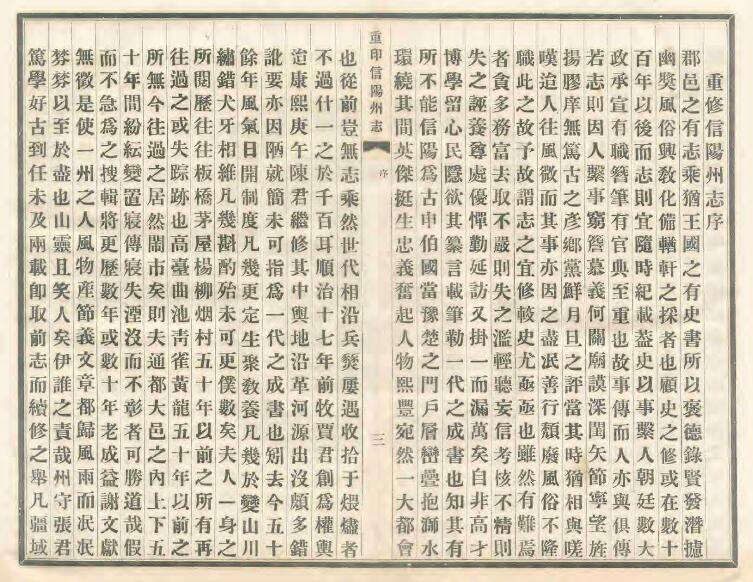 重修信陽州志序
郡邑之有志乘猶王國之有史書所以褒德錄賢發潛攄
幽獎風俗興敎化備輶軒之採者也顧史之修或在數十
百年以後而志則宜隨時紀載蓋史以事繫人朝廷數大
政承宣有職簪筆有官典至重也故事傳而人亦與俱傳
若志則因人繫事窮簷慕義何關廟謨深閨矢節寧望旌
揚膠庠無篤古之彥鄉黨鮮月旦之評當其時猶相與嗟
嘆迨人往風微而其事亦因之盡泯善行頹廢風俗不隆
職此之故予故謂志之宜修較史尤亟亟也雖然有難焉
者貪多務富去取不嚴則失之濫輕聽妄信考核不精則
失之誣養尊處優憚勤延訪又掛一而漏萬矣自非高才
博學留心民隱欲其纂言載筆勒一代之成書也知其有
所不能信陽爲古申伯國當豫楚之門戶層巒疊抱溮水
環繞其間英傑挺生忠義奮起人物熙豐宛然一大都會
重印信陽州志
序
三
也從前豈無志乘然世代相沿兵燹屢遇收拾于煨燼者
不過什一之於千百耳順治十七年前牧賈君創爲權輿
迨康熙庚午陳君繼修其中輿地沿革河源出沒頗多錯
訛要亦因陋就簡未可指爲一代之成書也矧去今五十
餘年風氣日開制度凡幾更定生聚敎養凡幾於變山川
繡錯犬牙相維凡幾斟酌殆未可更僕數矣夫人一身之
所閱歷往往板橋茅屋楊柳烟村五十年以前之所有再
往過之或失踪跡也高臺曲池靑雀黃龍五十年以前之
所無今往過之居然闤市矣則夫通都大邑之內上下五
十年間紛紜變置寢傳寢失湮沒而不彰者可勝道哉假
而不急爲之搜輯將更歷數年或數十年老成益謝文獻
無徵是使一州之人風物產節義文章都歸風雨而泯泯
棼棼以至於盡也山靈且笑人矣伊誰之責哉州守張君
篤學好古到任未及兩載卽取前志而續修之舉凡疆域